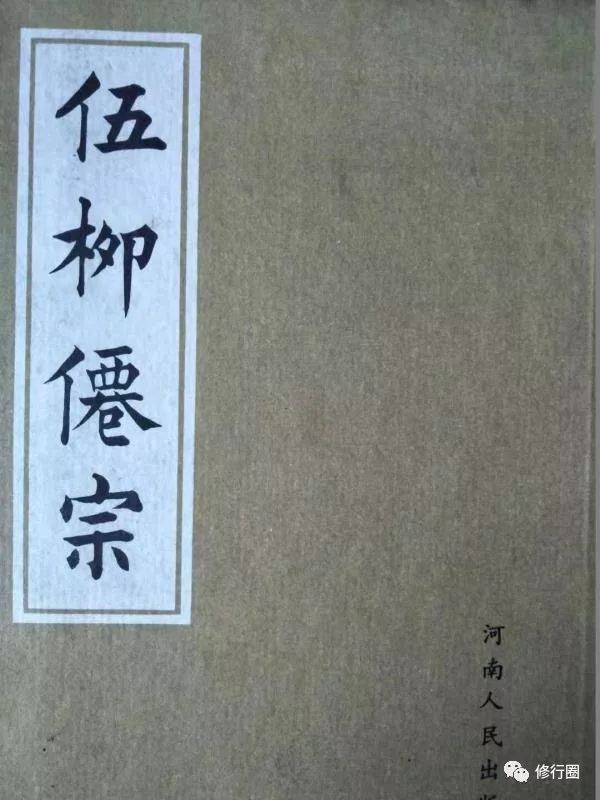 伍柳僊宗
河南人民出
修行圈